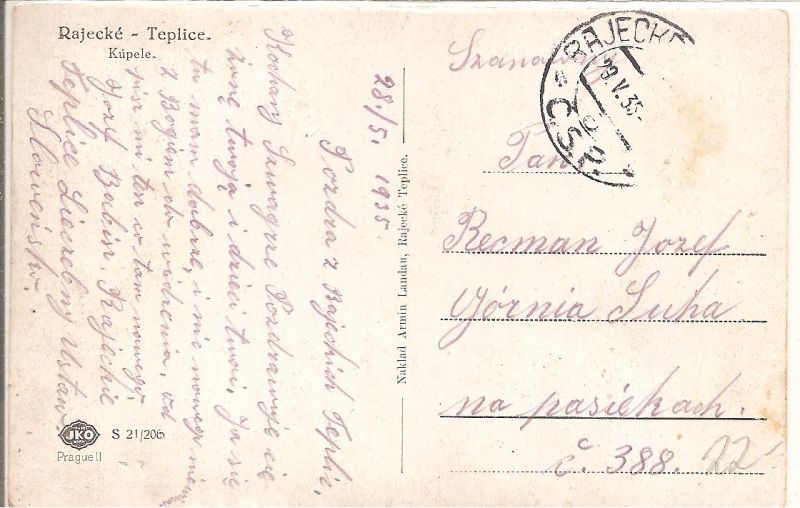 Rajecké - Teplice.
Kúpele.
28/5. 1935
Pozdra z Rajeckich Teplic,
Kochany Szwagrze Pozdrawuje cię
żonę twoją i dzieci twoi. Ja się
tu mam dobrze, i nic nowego
z Bogiem do widzenia, od
pisz mi ten co tam nowego.
Jozf Rajeckie
Teplice Lieczebny Ustaw.
Slowensko.
JKO
S 21/206
Prague II
Naklad Armin Landau, Rajecké Teplice.
RAJECKÉ
29.V.35-
Č.S.R.
Szanowny
Pan
Recman Jozef
Górnia Suha
na pasiekach.
č. 388.
22